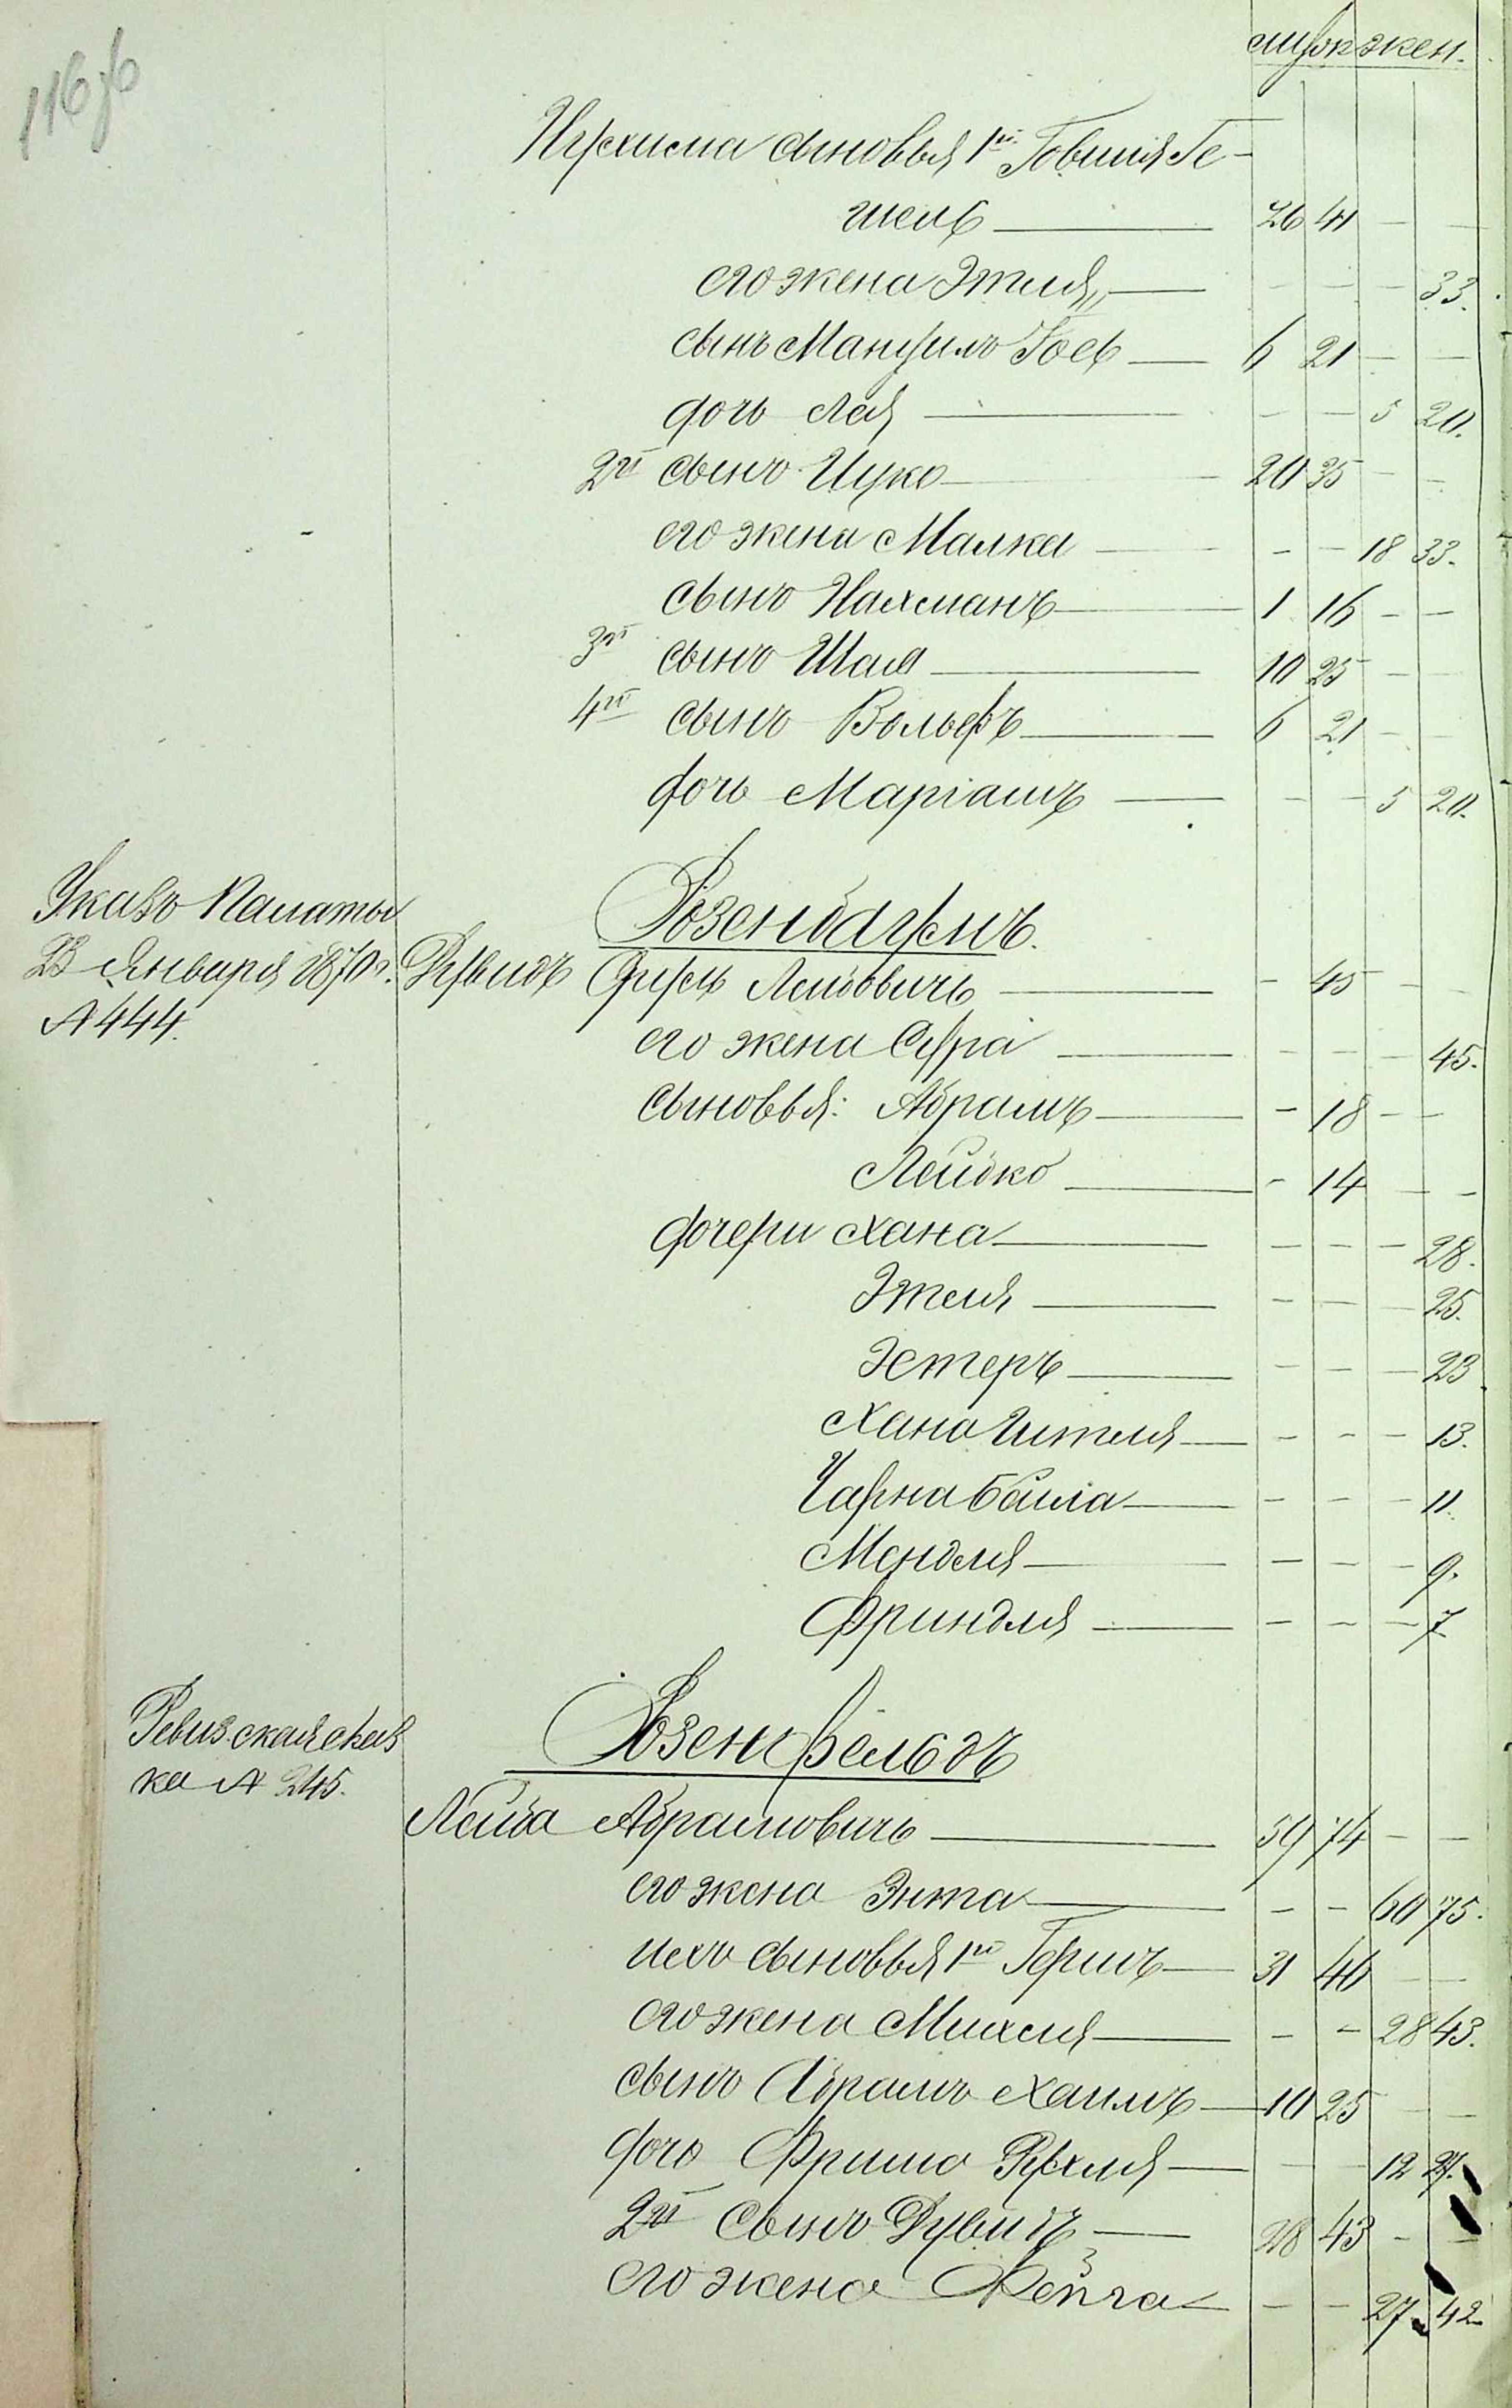 116 об
муж. жен.
Ирхима сыновья 1й Говшія Ге-
шель — 26 41 — —
его жена Этля — — — 33.
сынъ Мануилъ Іось — 6 21 — —
дочь Лея — — — 5 20.
2й сынъ Ицко — 20 35 — —
его жена Малка — — — 18 33.
сынъ Нахманъ — 1 16 — —
3й сынъ Шая — 10 25 — —
4й сынъ Вольфъ — 6 21 — —
дочь Маріамъ — — — 5 20.
Указъ Палаты
23 Января 1870 г.
№ 444.
Розенбаумъ.
Дувидъ Сруль Лейбовичъ — - 45 — —
его жена Сура — — — — 45.
сыновья: Абрамъ — - 18 — —
Лейбко — - 14 — —
дочери Хана — — — — 28.
Этля — — — — 25.
Эстеръ — — — — 23
Хана Ителя — — — — 13.
Чарна Бейла — — — — 11.
Мендля — — — — 9.
Фриндля — — — — 7
Ревизская сказ
ка № 245.
Розенфельдъ
Лейба Абрамовичъ — 59 74 — —
его жена Энта — — — 60 75.
ихъ сыновья 1й Гершъ — 31 46 — —
его жена Михля — — — 28 43.
сынъ Абрамъ Хаимъ — 10 25 — —
дочь Фрима Рухля — — — 12 27.
2й сынъ Дувидъ — 28 43 — —
его жена Фейга — — — 27 42